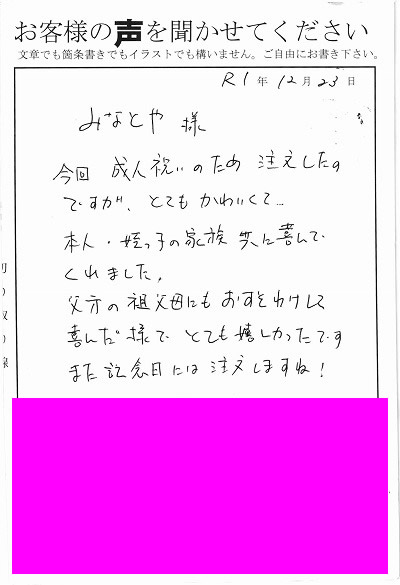 お客様の声を聞かせてください
文章でも箇条書きでもイラストでも構いません。ご自由にお書き下さい。
R1年12月23日
みなとや 様
今回 成人祝いのため 注文したの
ですが、とても かわいくて…
本人・姪っ子の家族 共に喜んで
くれました。
父方の祖父母にも おすそわけして
喜んだ様で とても嬉しかったです
また記念日には 注文しますね!